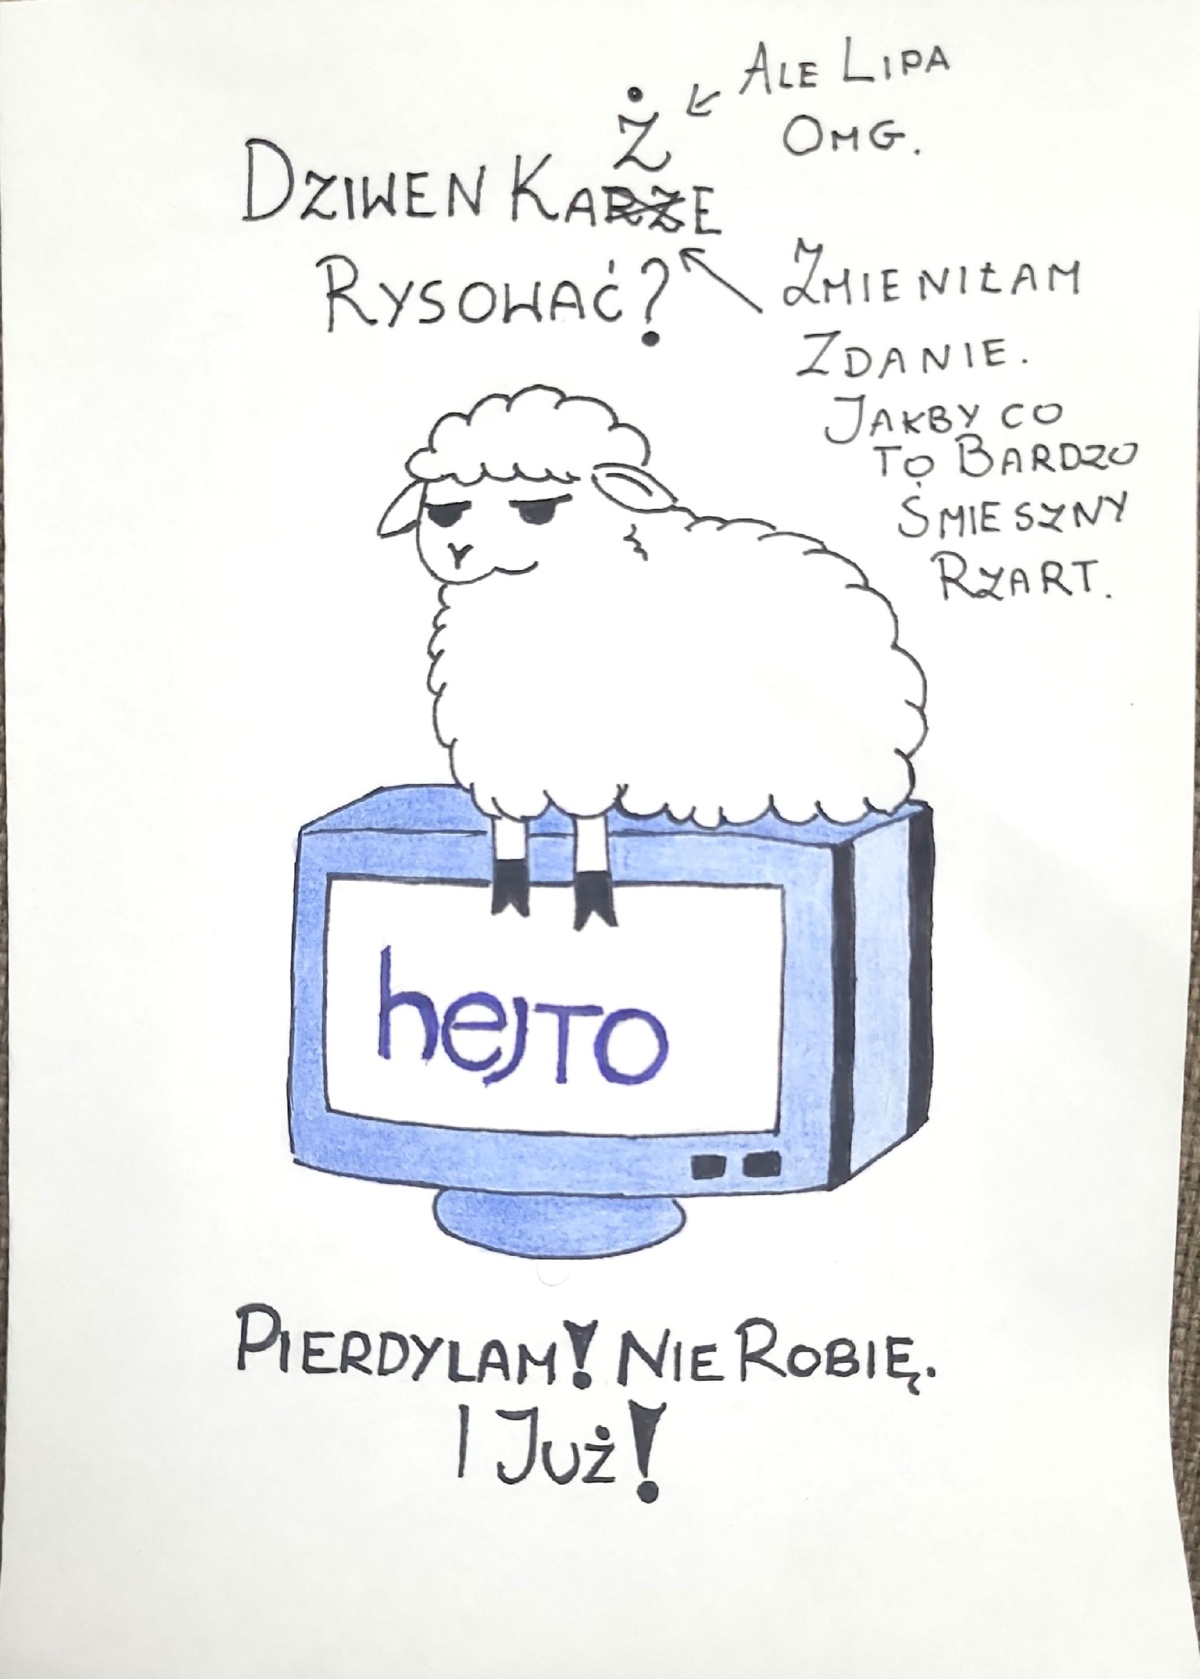 Ale Lipa
Omg.
Ż
Dziwen Karze
Rysować?
Zmieniłam
Zdanie.
Jakby co
to Bardzo
Śmieszny
Rzart.
hejto
Pierdylam! Nie Robię.
I Już!